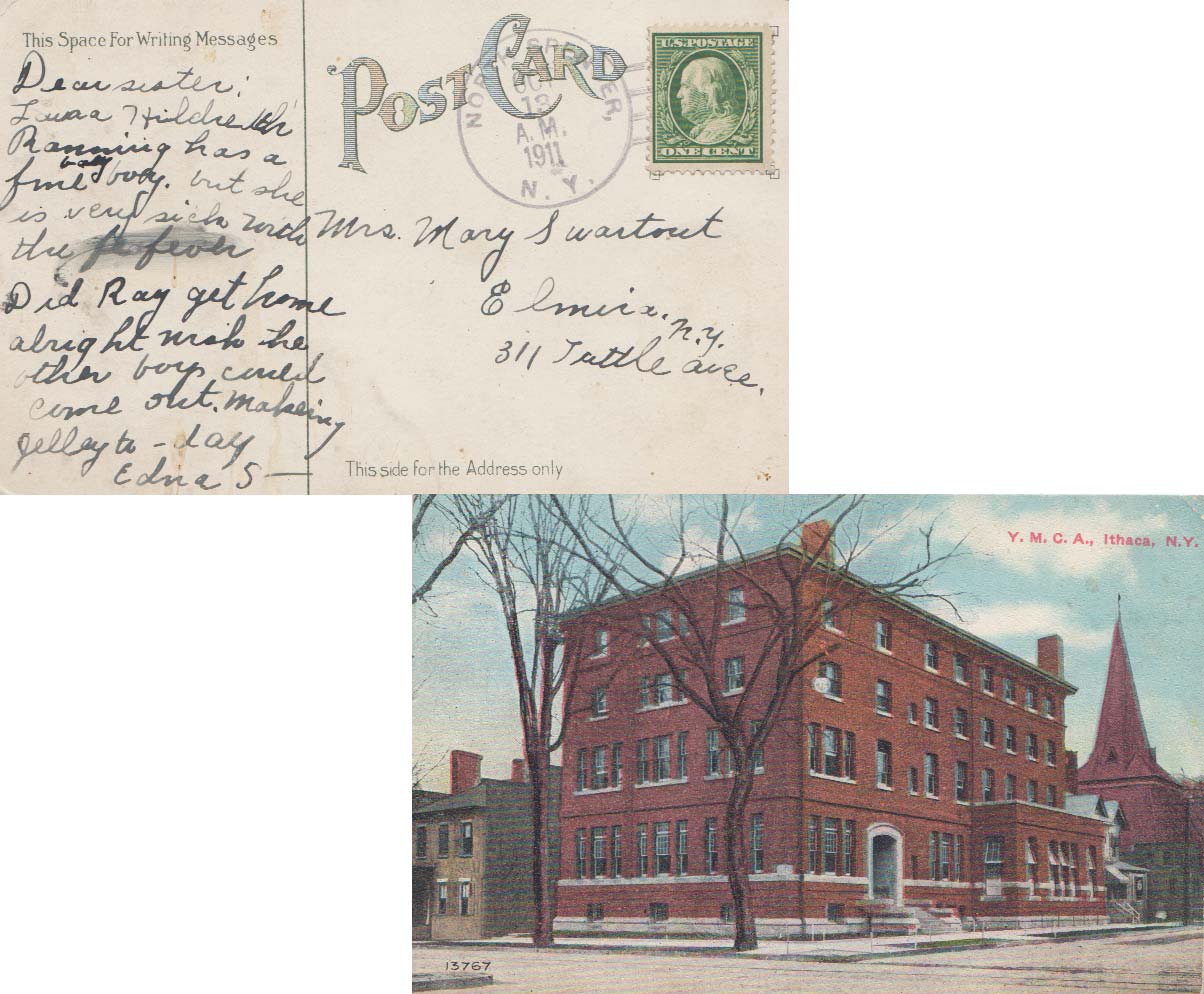 This Space For Writing Messages
POST CARD
U.S. POSTAGE
ONE CENT
NORTH SPENCER,
OCT
13
A.M.
1911
N. Y.
Dear sister;
Laura Hildreth
Ranning has a
fine baby boy. but she
is very sick with
the fever
Did Ray get home
alright wish the
other boys could
come out. Makeing
Jelley to-day
Edna S—
Mrs. Mary Swartout
Elmira.
N.Y.
311 Tuttle avee.
This side for the Address only
Y. M. C. A., Ithaca, N.Y.
13767